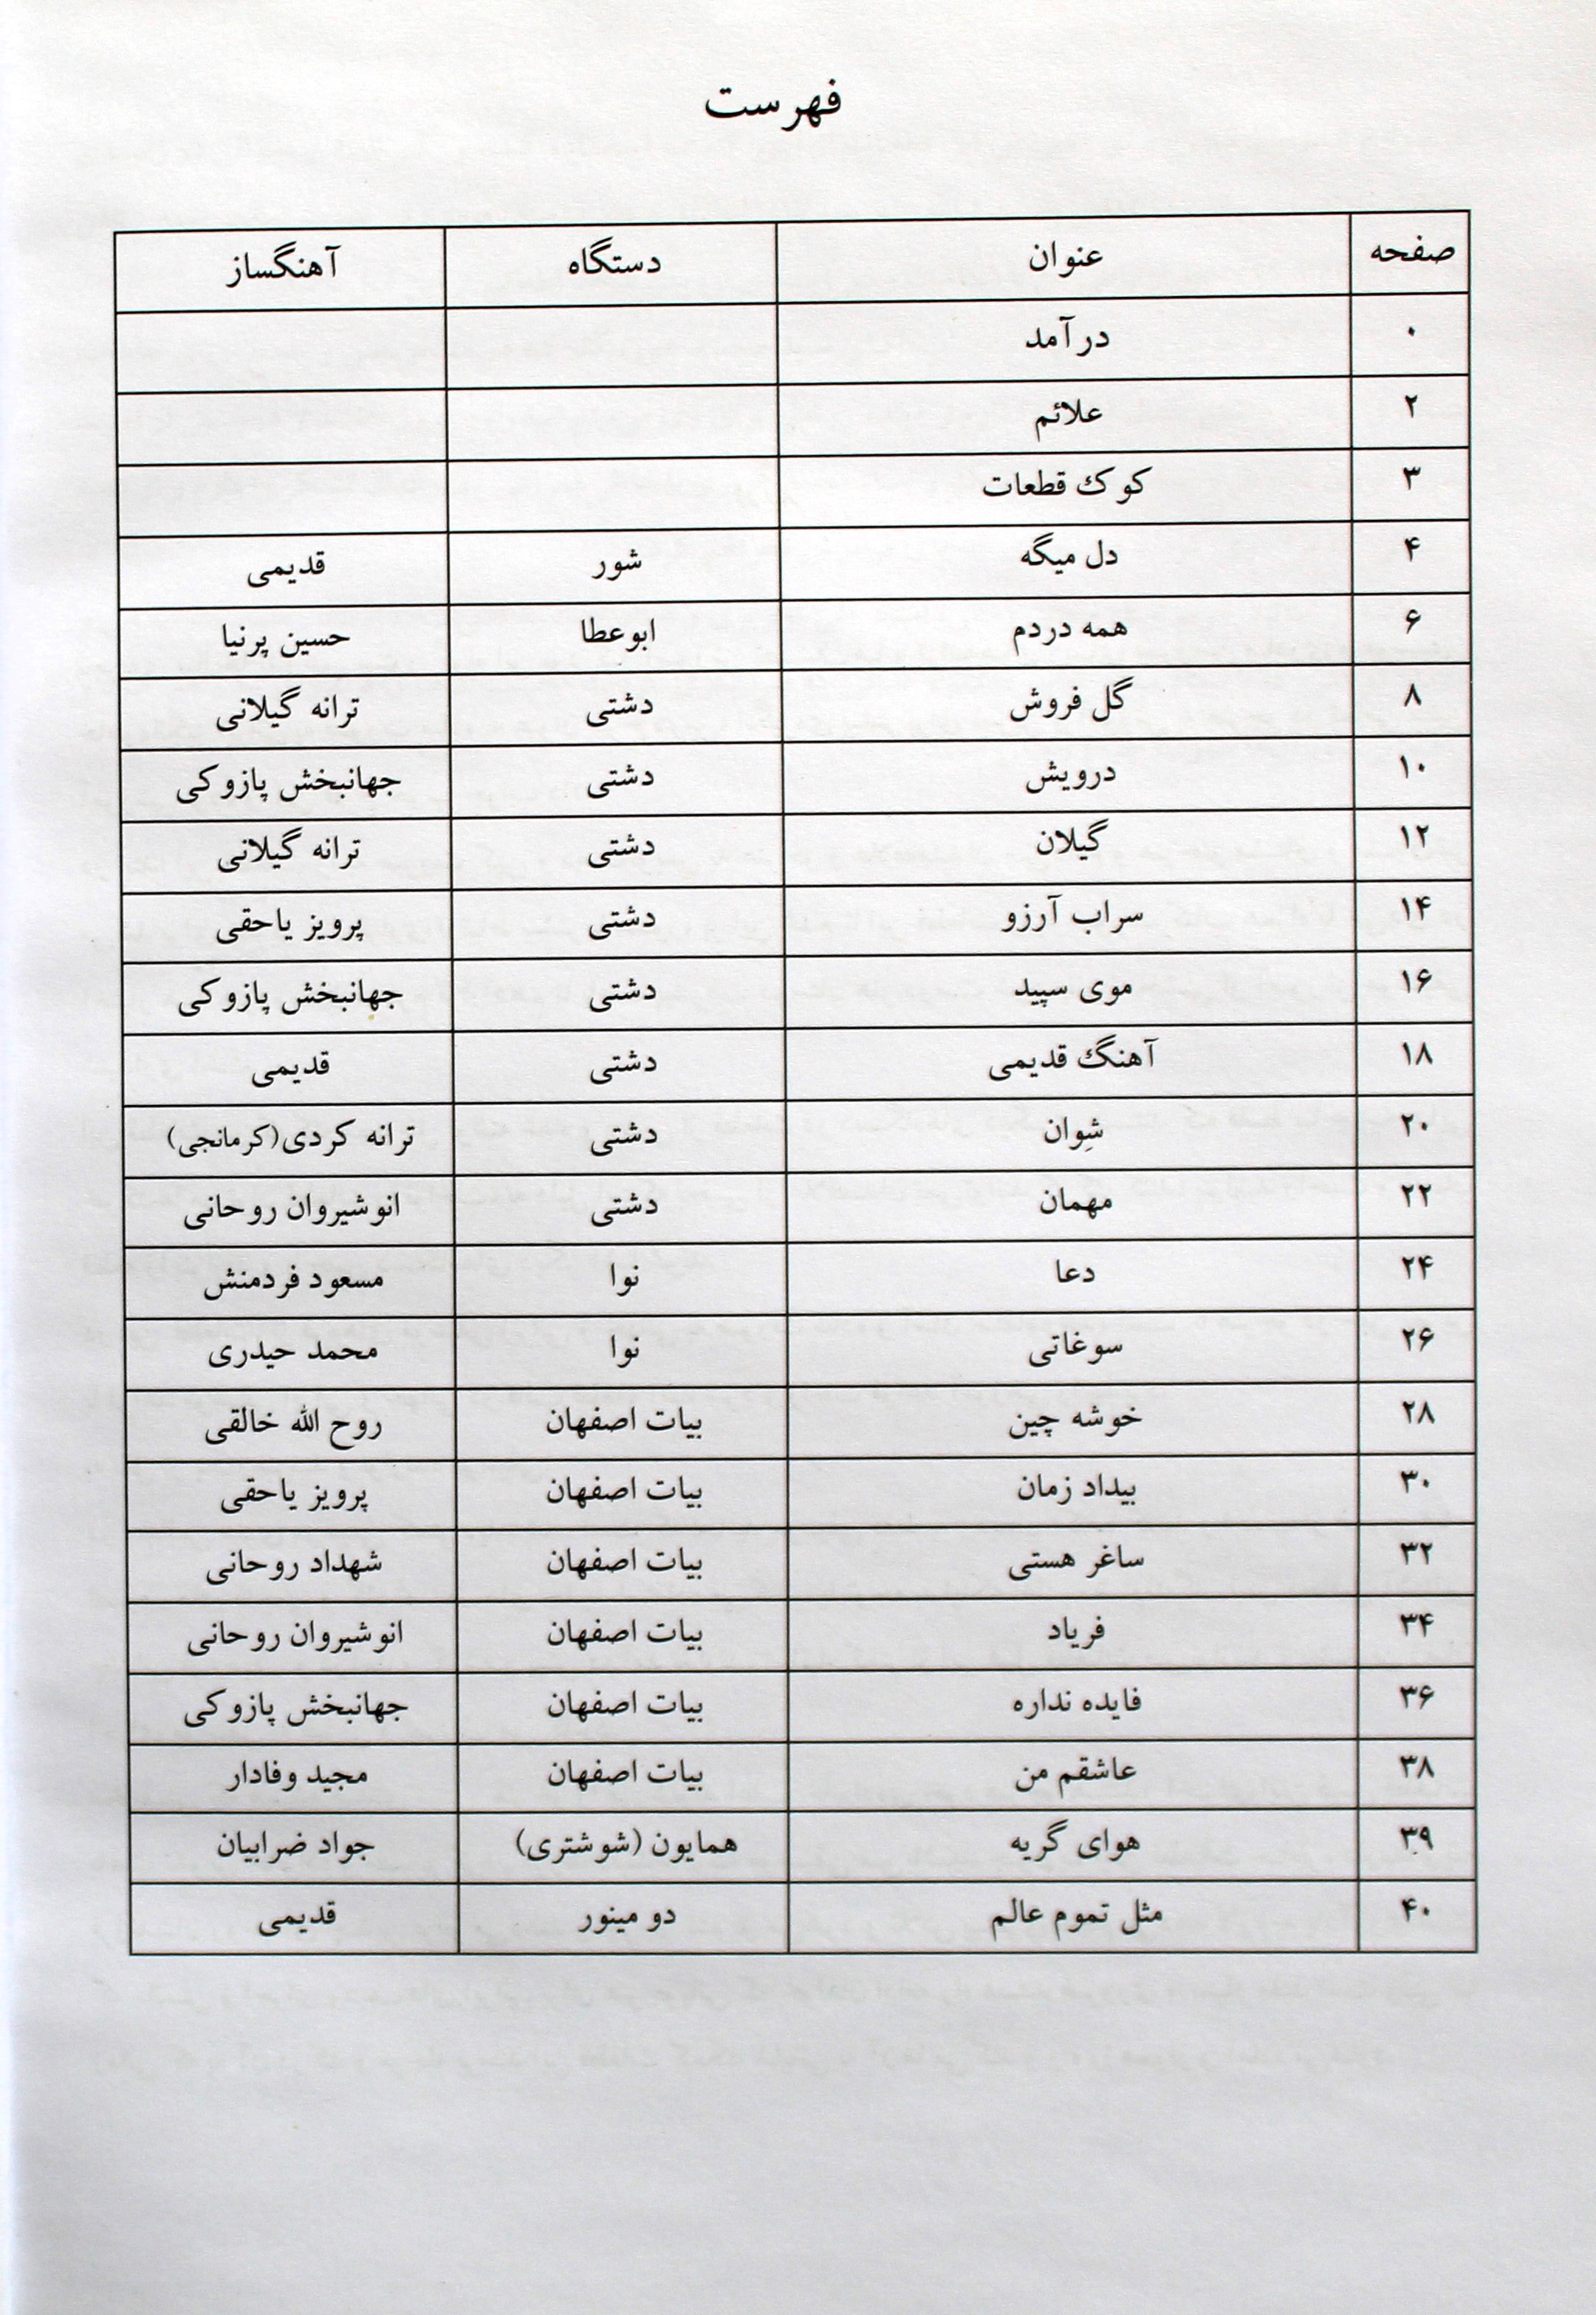 فهرست
صفحه عنوان دستگاه آهنگساز
۰ درآمد
۲ علائم
۳ کوک قطعات
۴ دل میگه شور قدیمی
۶ همه دردم ابوعطا حسین پرنیا
۸ گل فروش دشتی ترانه گیلانی
۱۰ درویش دشتی جهانبخش پازوکی
۱۲ گیلان دشتی ترانه گیلانی
۱۴ سراب آرزو دشتی پرویز یاحقی
۱۶ موی سپید دشتی جهانبخش پازوکی
۱۸ آهنگ قدیمی دشتی قدیمی
۲۰ شِوان دشتی ترانه کردی(کرمانجی)
۲۲ مهمان دشتی انوشیروان روحانی
۲۴ دعا نوا مسعود فردمنش
۲۶ سوغاتی نوا محمد حیدری
۲۸ خوشه چین بیات اصفهان روح الله خالقی
۳۰ بیداد زمان بیات اصفهان پرویز یاحقی
۳۲ ساغر هستی بیات اصفهان شهداد روحانی
۳۴ فریاد بیات اصفهان انوشیروان روحانی
۳۶ فایده نداره بیات اصفهان جهانبخش پازوکی
۳۸ عاشقم من بیات اصفهان مجید وفادار
۳۹ هوای گریه همایون (شوشتری) جواد ضرابیان
۴۰ مثل تموم عالم دو مینور قدیمی